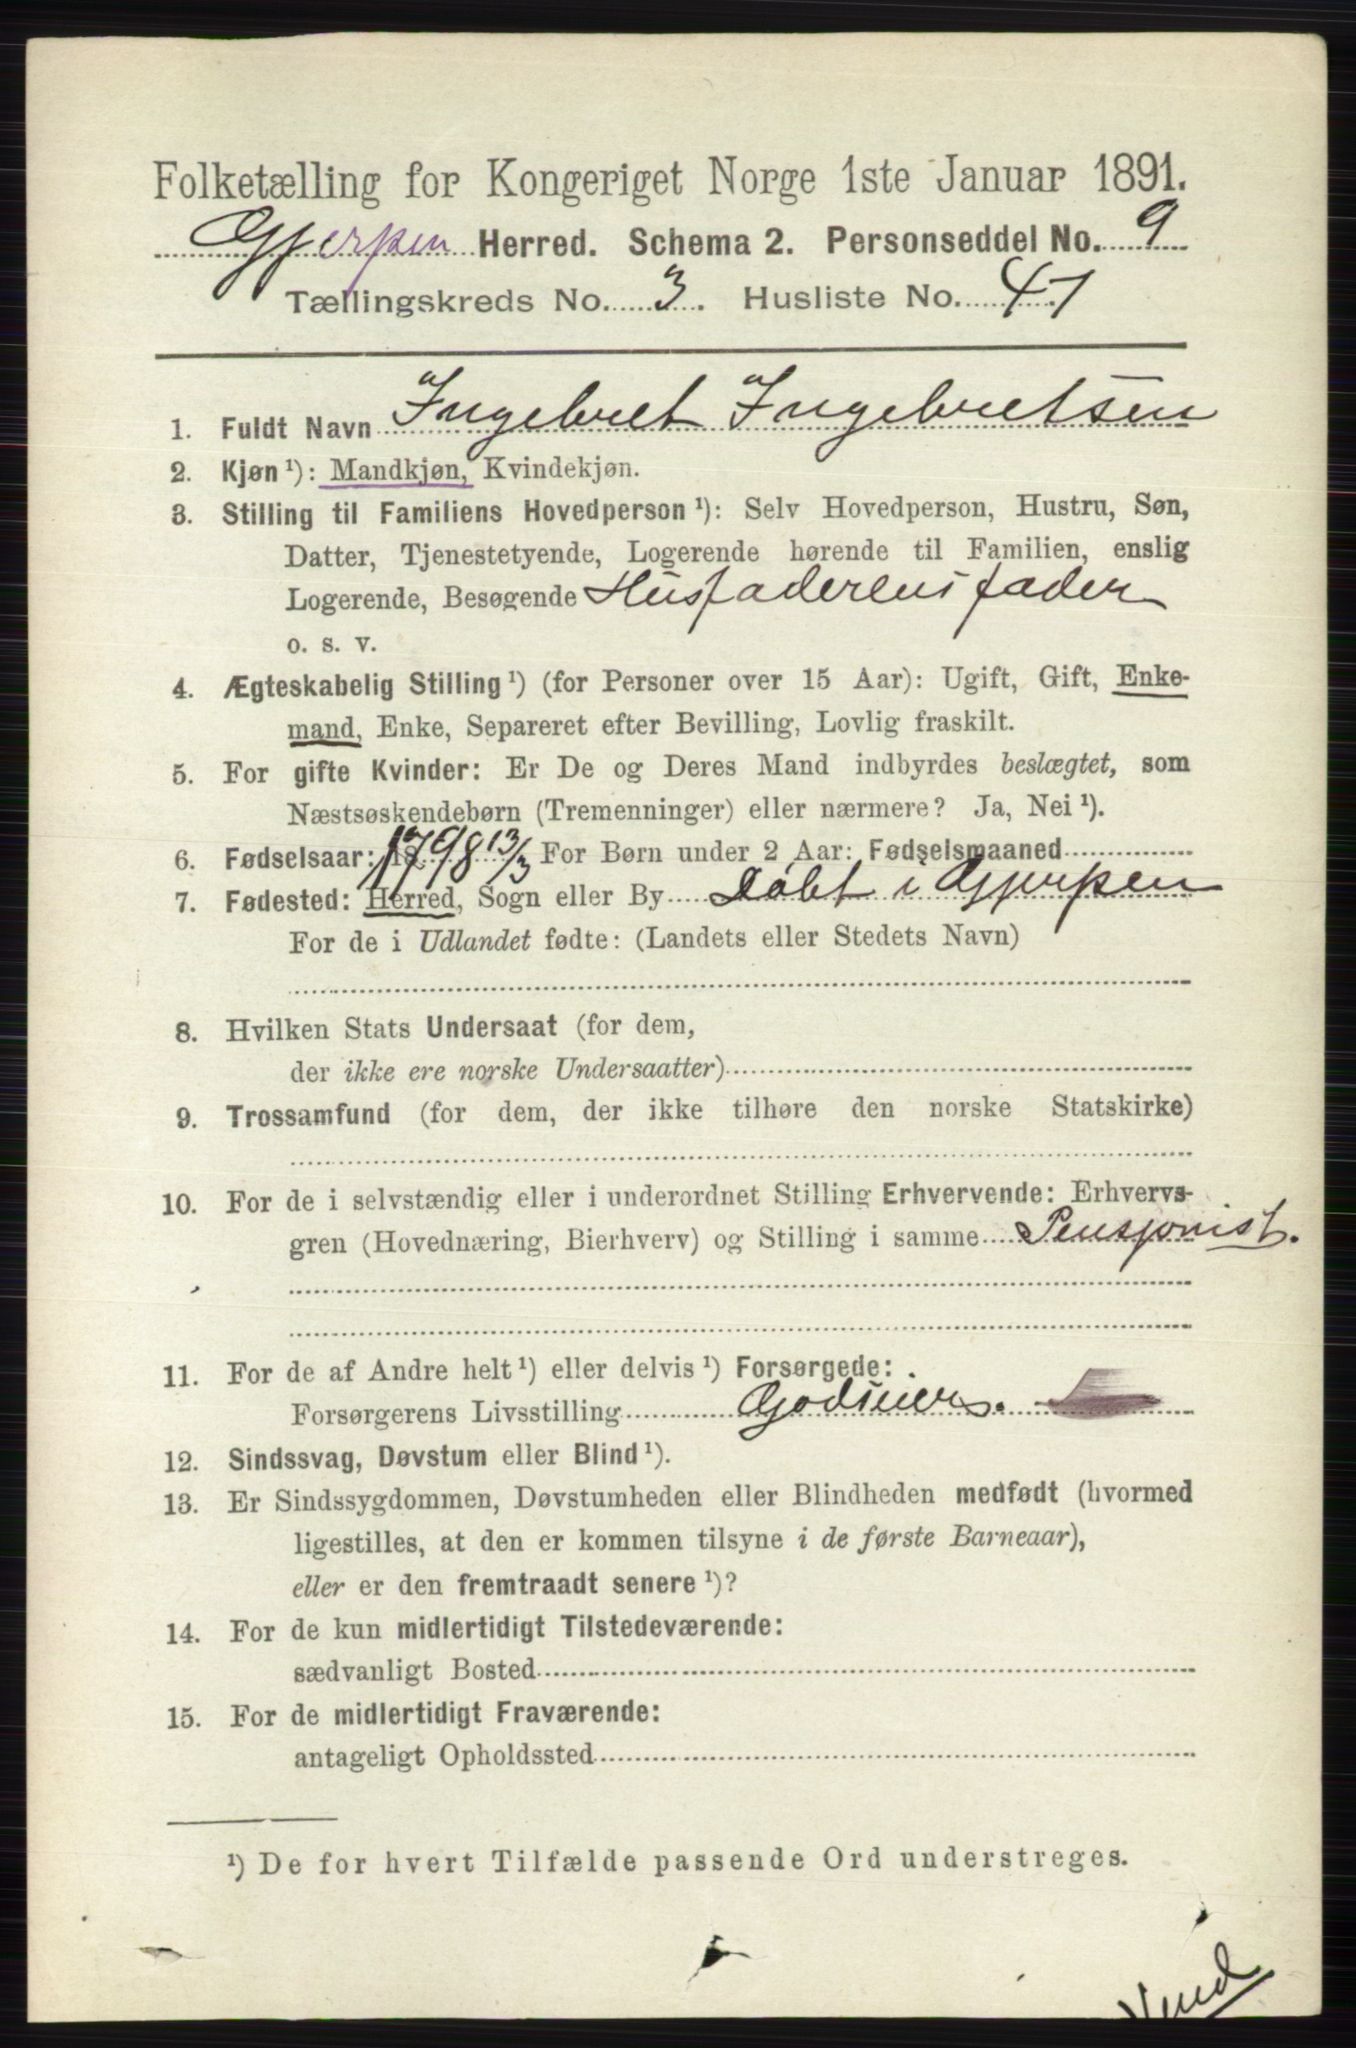 Folketælling for Kongeriget Norge 1ste Januar 1891.
Gjerpen Herred. Schema 2. Personseddel No. 9
Tællingskreds No. 3. Husliste No. 47
1. Fuldt Navn Ingebret Ingebretsen
2. Kjøn ¹): Mandkjøn, Kvindekjøn.
3. Stilling til Familiens Hovedperson ¹): Selv Hovedperson, Hustru, Søn,
Datter, Tjenestetyende, Logerende hørende til Familien, enslig
Logerende, Besøgende Husfaderens fader
o. s. v.
4. Ægteskabelig Stilling ¹) (for Personer over 15 Aar): Ugift, Gift, Enke-
mand, Enke, Separeret efter Bevilling, Lovlig fraskilt.
5. For gifte Kvinder: Er De og Deres Mand indbyrdes beslægtet, som
Næstsøskendebørn (Tremenninger) eller nærmere? Ja, Nei ¹).
6. Fødselsaar: 1798 13/3 For Børn under 2 Aar: Fødselsmaaned
7. Fødested: Herred, Sogn eller By Døbt i Gjerpen
For de i Udlandet fødte: (Landets eller Stedets Navn)
8. Hvilken Stats Undersaat (for dem,
der ikke ere norske Undersaatter)
9. Trossamfund (for dem, der ikke tilhøre den norske Statskirke)
10. For de i selvstændig eller i underordnet Stilling Erhvervende: Erhvervs-
gren (Hovednæring, Bierhverv) og Stilling i samme Pensjonist.
11. For de af Andre helt ¹) eller delvis ¹) Forsørgede:
Forsørgerens Livsstilling Godseiers.
12. Sindssvag, Døvstum eller Blind ¹).
13. Er Sindssygdommen, Døvstumheden eller Blindheden medfødt (hvormed
ligestilles, at den er kommen tilsyne i de første Barneaar),
eller er den fremtraadt senere ¹)?
14. For de kun midlertidigt Tilstedeværende:
sædvanligt Bosted
15. For de midlertidigt Fraværende:
antageligt Opholdssted
¹) De for hvert Tilfælde passende Ord understreges.
Vend